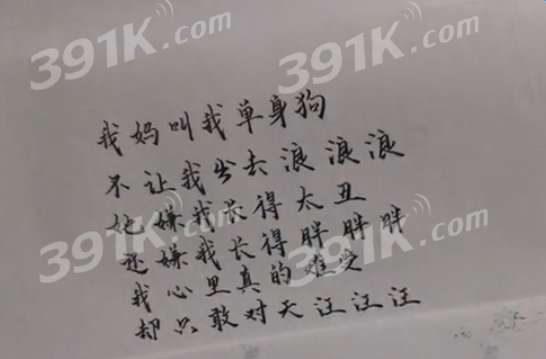 391K.com
391K.com
我妈叫我单身狗
不让我出去浪浪浪
她嫌我长得太丑
还嫌我长得胖胖胖
我心里真的难受
却只敢对天汪汪汪
391K.com
391K.com